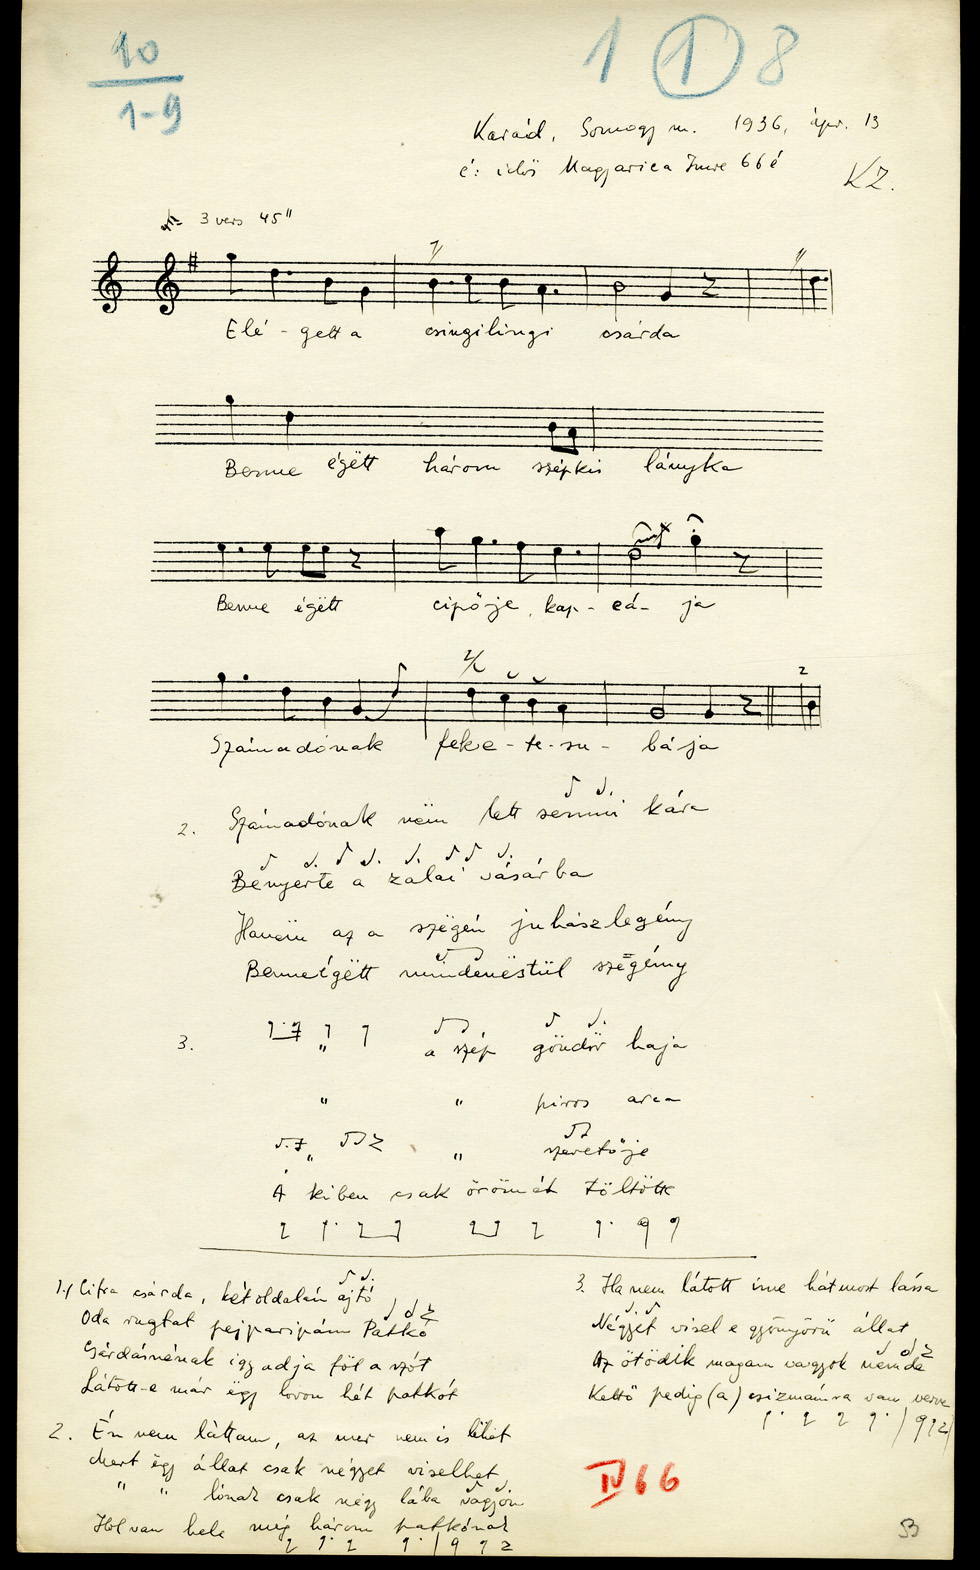 10
1-9
1 1 8
Karád, Somogy m. 1936, ápr. 13
é: idős Magyarica Imre 66 é
KZ.
3 vers 45"
Elé - gett a csingilingi csárda
Benne égëtt három szép kis lányka
Benne égëtt cipője, kap - cá - ja
Számadónak feke - te - su - bá - ja
2. Számadónak nëm lett semmi kára
Bényerte a zalai vásárba
Hanëm az a szëgén juhászlegény
Benneégëtt mindenëstül szëgény
3. " a szép göndör haja
" " piros arca
" " szeretője
A kiben csak örömét töltötte
1./ Cifra csárda, két oldalán ajtó
Oda rugtat pejparipám Patkó
Csárdásnénak így adja föl a szót
Látott-e már ëgy lovon hét patkót
2. Én nem láttam, az mer nem is lëhet
Mert ëgy állat csak négyet viselhet
" " lónak csak négy lába vagyon
Hol van hele még három patkónak
3. Ha nem látott íme hát most lássa
Négyet visel e gyönyörű állat
Az ötödik magam vagyok nemde
Kettő pedig (a) csizmámra van verve
IV 66
53